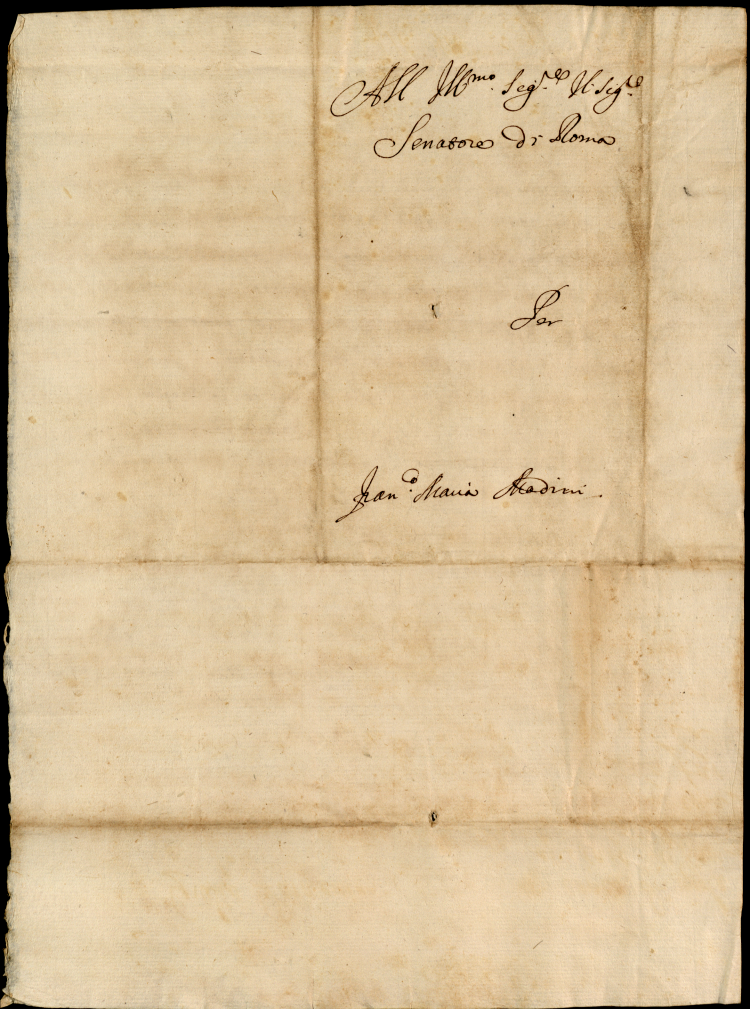 All Ill:mo Sig.re Il Sig.re
Senatore di Roma
Per
Fran.co Maria